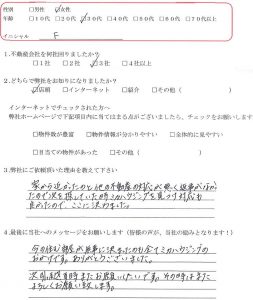 性別 □男性 ☑女性
年齢 □10代 □20代 ☑30代 □40代 □50代 □60代 □70代以上
イニシャル F
1.不動産会社を何社回りましたか?
□1社 □2社 ☑3社 □4社以上
2.どちらで弊社をお知りになりましたか?
☑店頭 □インターネット □紹介 □その他( )
インターネットでチェックされた方へ
弊社ホームページで下記項目内に当てはまる点がございましたら、チェックをお願いします
□物件数が豊富 □物件情報が分かりやすい □全体的に見やすい
□目当ての物件があった □その他( )
3.弊社にご依頼頂いた理由を教えて下さい
家から近かったのと他の不動産の対応が悪く
たので次を探していた時ミカハウジングを見つけ対応も
良かったので、ここに決めました。
4.最後に当社へのメッセージをお願いします(皆様の声が、当社の励みとなります!)
ミカハウジングの
おかげです。ありがとうございました。
次回越す時またお願いしたいです。その時はまた
よろしくお願い致します。